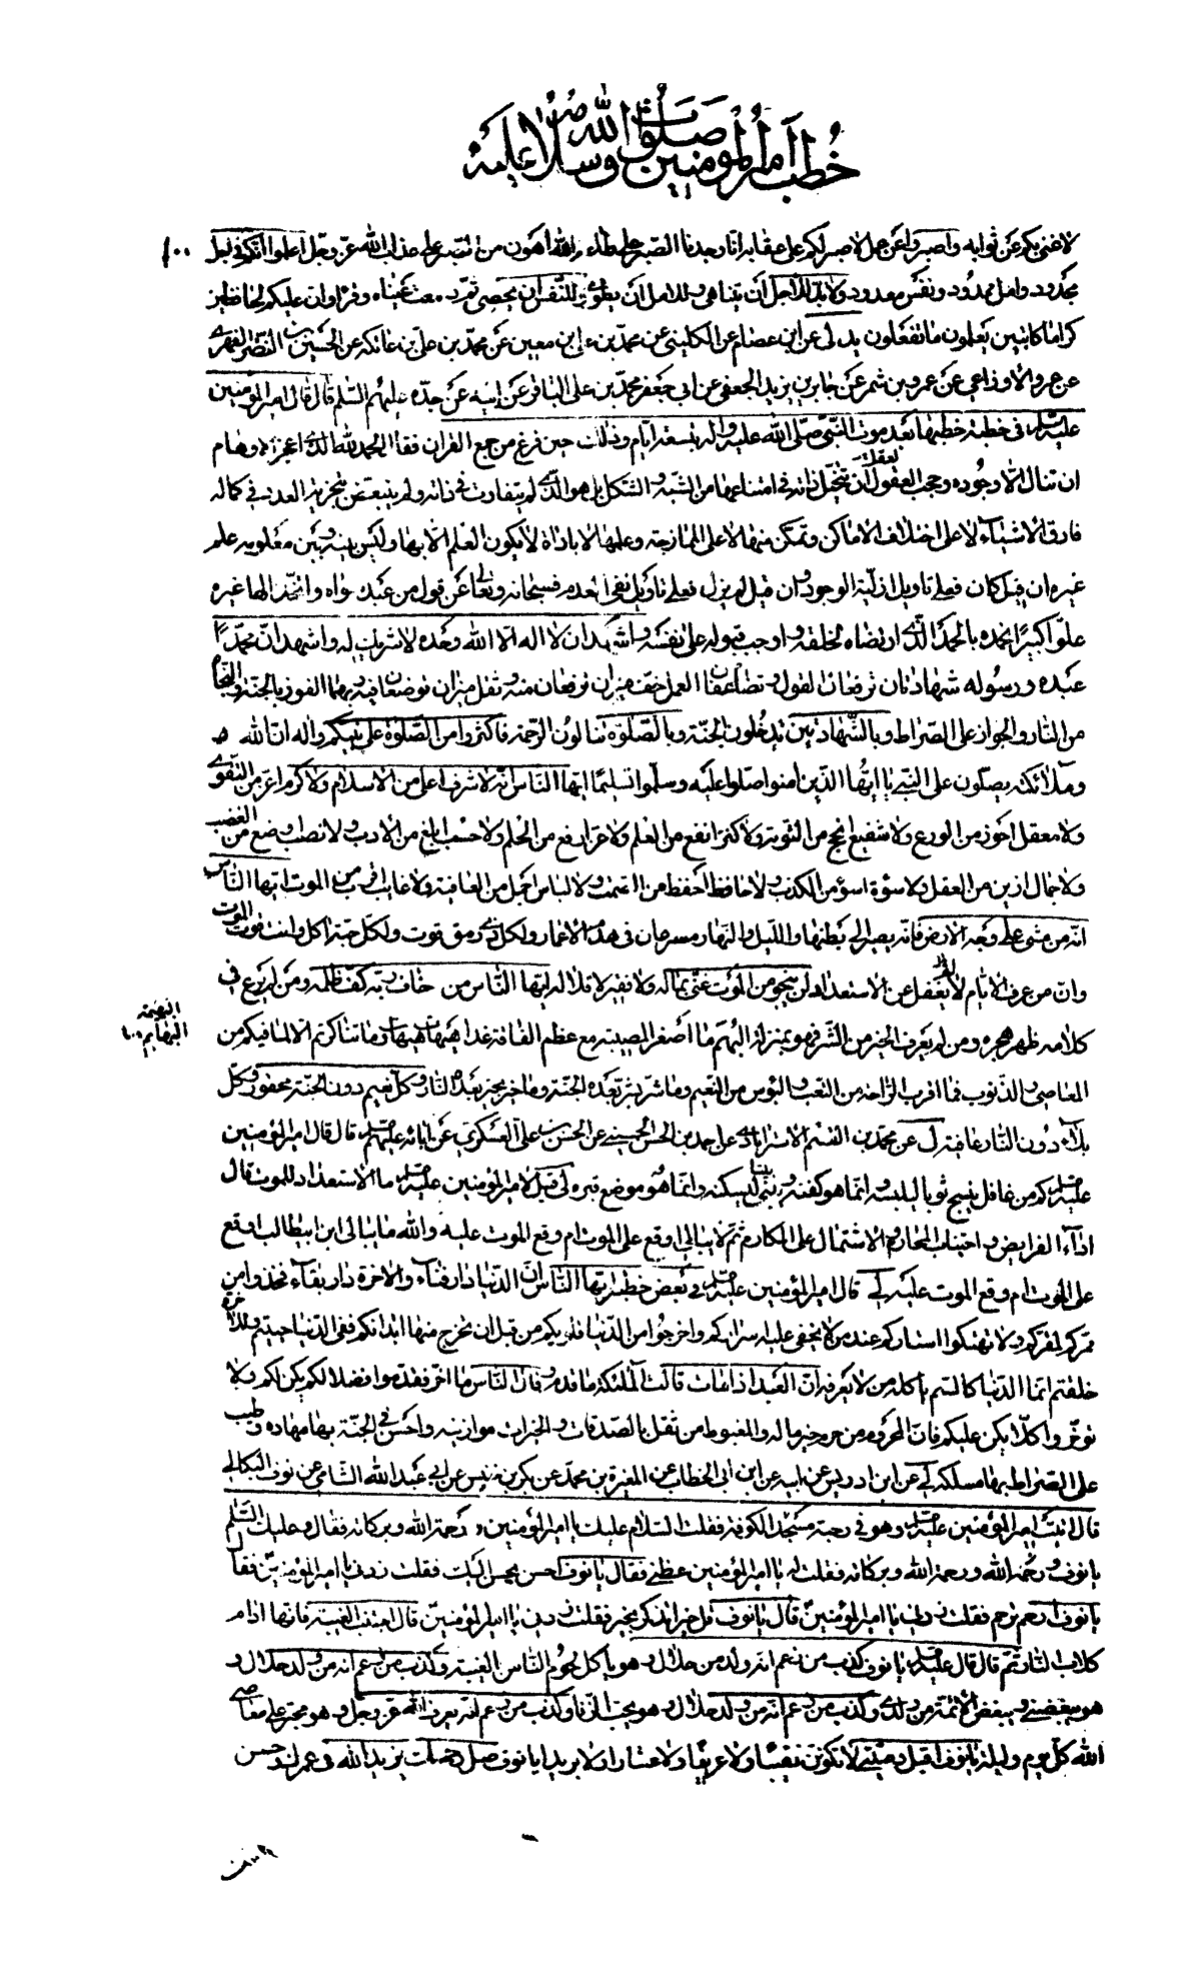 خطب أمير المؤمنين صلوات الله وسلامه عليه
لا غنى بكم عن ثوابه واصبروا عن عمل لا صبر لكم على عقابه انا وجدنا الصبر على طاعة الله اهون من الصبر على عذاب الله عز وجل اعلموا انكم في اجل
محدود وامل ممدود ونفس معدود ولا بد للاجل ان يتناهى وللامل ان يطوى وللنفس ان يحصى ثم دمعت عيناه وقرأ وان عليكم لحافظين
كراما كاتبين يعلمون ما تفعلون يد لى عن ابن عصام عن الكليني عن محمد بن على بن معين عن محمد بن على بن عاتكه عن الحسين بن النضر الفهرى
عن عمرو الاوزاعى عن عمرو بن شمر عن جابر بن يزيد الجعفى عن ابى جعفر محمد بن على الباقر عن ابيه عن جده عليهم السلم قال قال امير المؤمنين
عليه السلم فى خطبة خطبها بعد موت النبى صلى الله عليه واله بتسعة ايام وذلك حين فرغ من جمع القران فقال الحمد لله الذى اعجز الاوهام
ان تنال الا وجوده وحجب العقول ان تتخيل ذاته فى امتناعها من الشبه والشكل بل هو الذى لم يتفاوت فى ذاته ولم يتبعض بتجزية العدد فى كماله
فارق الاشياء لا على اختلاف الاماكن وتمكن منها لا على الممازجة وعلمها لا باداة لا يكون العلم الا بها وليس بينه وبين معلومه علم
غيره ان قيل كان فعلى تاويل ازلية الوجود وان قيل لم يزل فعلى تاويل نفى العدم فسبحانه وتعالى عن قول من عبد سواه واتخذ الها غيره
علوا كبيرا نحمده بالحمد الذى ارتضاه لخلقه واوجب قبوله على نفسه واشهد ان لا اله الا الله وحده لا شريك له واشهد ان محمدا
عبده ورسوله شهادتان ترفعان القول وتضاعفان العمل خف ميزان ترفعان منه وثقل ميزان توضعان فيه وبهما الفوز بالجنة والنجاة
من النار والجواز على الصراط وبالشهادتين تدخلون الجنة وبالصلوة تنالون الرحمة فاكثروا من الصلوة على نبيكم واله ان الله
وملائكته يصلون على النبى يا ايها الذين امنوا صلوا عليه وسلموا تسليما ايها الناس انه لا شرف اعلى من الاسلام ولا كرم اعز من التقوى
ولا معقل احرز من الورع ولا شفيع انجح من التوبة ولا كنز انفع من العلم ولا عز ارفع من الحلم ولا حسب ابلغ من الادب ولا نصب اوضع من الغضب
ولا جمال ازين من العقل ولا سوءة اسوء من الكذب ولا حافظ احفظ من الصمت ولا لباس اجمل من العافية ولا غايب اقرب من الموت ايها الناس
انه من مشى على وجه الارض فانه يصير الى بطنها والليل والنهار مسرعان فى هدم الاعمار ولكل ذى رمق قوت ولكل حبة اكل وانت قوت الموت
وان من عرف الايام لم يغفل عن الاستعداد لن ينجو من الموت غنى بماله ولا فقير لاقلاله ايها الناس من خاف ربه كف ظلمه ومن لم يرع فى
كلامه ظهر هجره ومن لم يعرف الخير من الشر فهو بمنزلة البهم ما اصغر المصيبة مع عظم الفاقة غدا هيهات هيهات وما تناكرتم الا لما فيكم من
المعاصى والذنوب فما اقرب الراحة من التعب والبؤس من النعيم وما شر بشر بعده الجنة وما خير بخير بعده النار وكل نعيم دون الجنة محقور وكل
بلاء دون النار عافية ل عن محمد بن القسم الاسترابادى عن احمد بن الحسن الحسينى عن الحسن بن على العسكرى عن ابائه عليهم السلم قال قال امير المؤمنين
عليه السلم كم من غافل ينسج ثوبا ليلبسه وانما هو كفنه ويبنى بيتا ليسكنه وانما هو موضع قبره لى قيل لامير المؤمنين عليه السلم ما الاستعداد للموت قال
اداء الفرايض واجتناب المحارم والاشتمال على المكارم ثم لا يبالى اوقع على الموت ام وقع الموت عليه والله ما يبالى ابن ابيطالب اوقع
على الموت ام وقع الموت عليه لى قال امير المؤمنين عليه السلم فى بعض خطبه ايها الناس ان الدنيا دار فناء والاخرة دار بقاء فخذوا من
ممركم لمقركم ولا تهتكوا استاركم عند من لا يخفى عليه اسراركم واخرجوا من الدنيا قلوبكم من قبل ان تخرج منها ابدانكم ففى الدنيا حييتم وللاخرة
خلقتم انما الدنيا كالسم ياكله من لا يعرفه ان العبد اذا مات قالت الملئكة ما قدم وقال الناس ما اخر فقدموا فضلا لكم يكن لكم ولا
تؤخروا كلا يكن عليكم فان المحروم من حرم خير ماله والمغبوط من ثقل بالصدقات والخيرات موازينه واحسن فى الجنة بها مهاده وطيب
على الصراط بها مسلكه لى عن ابن ادريس عن ابيه عن ابن ابى الخطاب عن المغيرة بن محمد عن بكر بن خنيس عن ابى عبد الله الشامى عن نوف البكالى
قال اتيت امير المؤمنين عليه السلم وهو فى رحبة مسجد الكوفة فقلت السلام عليك يا امير المؤمنين ورحمة الله وبركاته فقال وعليك السلم
يا نوف ورحمة الله وبركاته فقلت له يا امير المؤمنين عظنى فقال يا نوف احسن يحسن اليك فقلت زدنى يا امير المؤمنين فقال
يا نوف ارحم ترحم فقلت زدنى يا امير المؤمنين قال يا نوف قل خيرا تذكر بخير فقلت زدنى يا امير المؤمنين قال اجتنب الغيبة فانها ادام
كلاب النار ثم قال قال عليه السلم يا نوف كذب من زعم انه ولد من حلال وهو ياكل لحوم الناس بالغيبة وكذب من زعم انه من ولد حلال و
هو يبغضنى ويبغض الائمة من ولدى وكذب من زعم انه من ولد حلال وهو يحب الزنا وكذب من زعم انه يعرف الله عز وجل وهو مجتر على معاصى
الله كل يوم وليلة يا نوف اقبل وصيتى لا تكونن نقيبا ولا عريفا ولا عشارا ولا بريدا يا نوف صل رحمك يزيد الله فى عمرك وحسن
البهيمة
البهايم